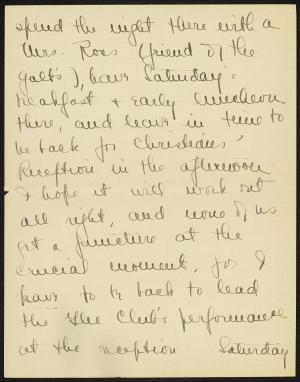 spend the night there with a
Mrs. Ross (friend of the
Galt's), have Saturday
breakfast & early luncheon
there, and leave in time to
be back for Christians'
Reception in the afternoon.
I hope it will work out
all right, and none of us
get a puncture at the
crucial moment, for I
have to be back to lead
the Glee Club's performance
at the reception. Saturday